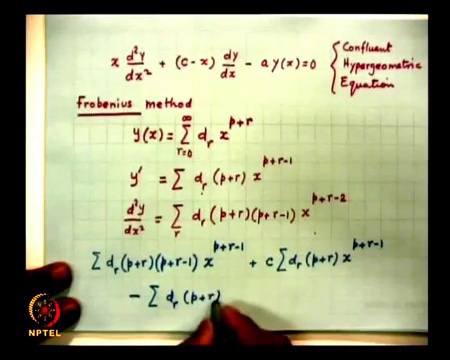 x d²y/dx² + (c-x) dy/dx - a y(x) = 0 { Confluent Hypergeometric Equation
Frobenius method
y(x) = ∑_{r=0}^{∞} d_r x^{p+r}
y' = ∑ d_r (p+r) x^{p+r-1}
d²y/dx² = ∑_r d_r (p+r)(p+r-1) x^{p+r-2}
∑ d_r (p+r)(p+r-1) x^{p+r-1} + c ∑ d_r (p+r) x^{p+r-1}
- ∑ d_r (p+r)
NPTEL